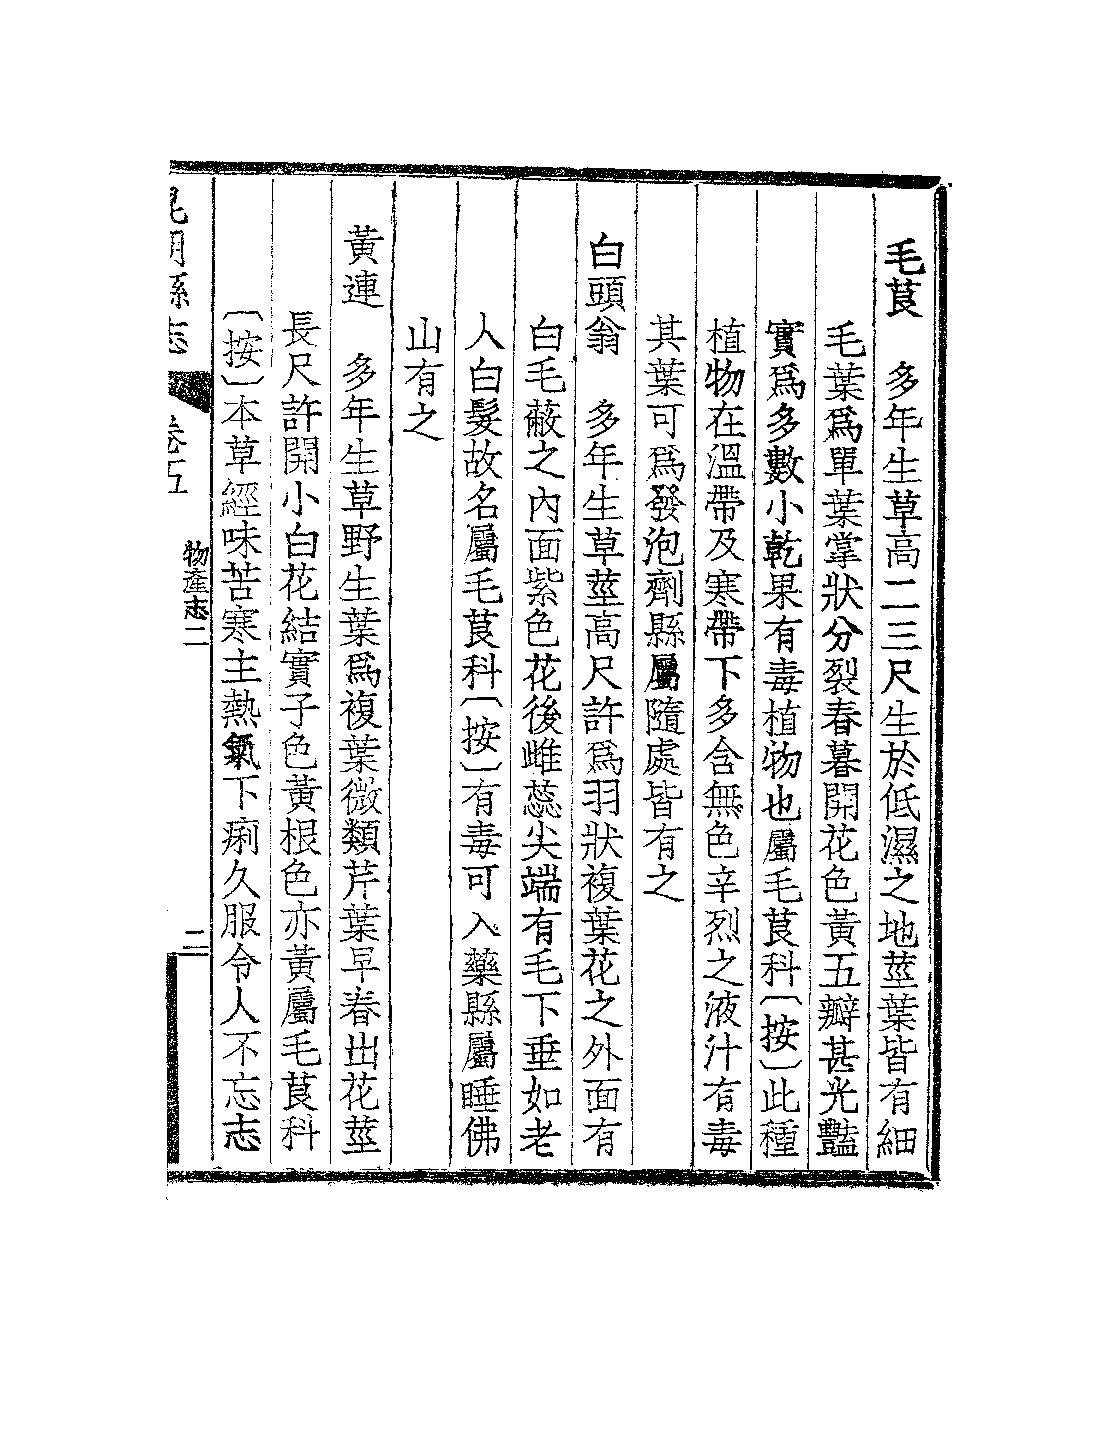 毛茛　多年生草高二三尺生於低濕之地莖葉皆有細
毛葉爲單葉掌狀分裂春暮開花色黃五瓣甚光豔
實爲多數小乾果有毒植物也屬毛茛科〔按〕此種
植物在溫帶及寒帶下多含無色辛烈之液汁有毒
其葉可爲發泡劑縣屬隨處皆有之
白頭翁　多年生草莖高尺許爲羽狀複葉花之外面有
白毛蔽之內面紫色花後雌蕊尖端有毛下垂如老
人白髮故名屬毛茛科〔按〕有毒可入藥縣屬睡佛
山有之
黃連　多年生草野生葉爲複葉微類芹葉早春出花莖
長尺許開小白花結實子色黃根色亦黃屬毛茛科
〔按〕本草經味苦寒主熱氣下痢久服令人不忘志
昆明縣志　卷五　物產志二　二